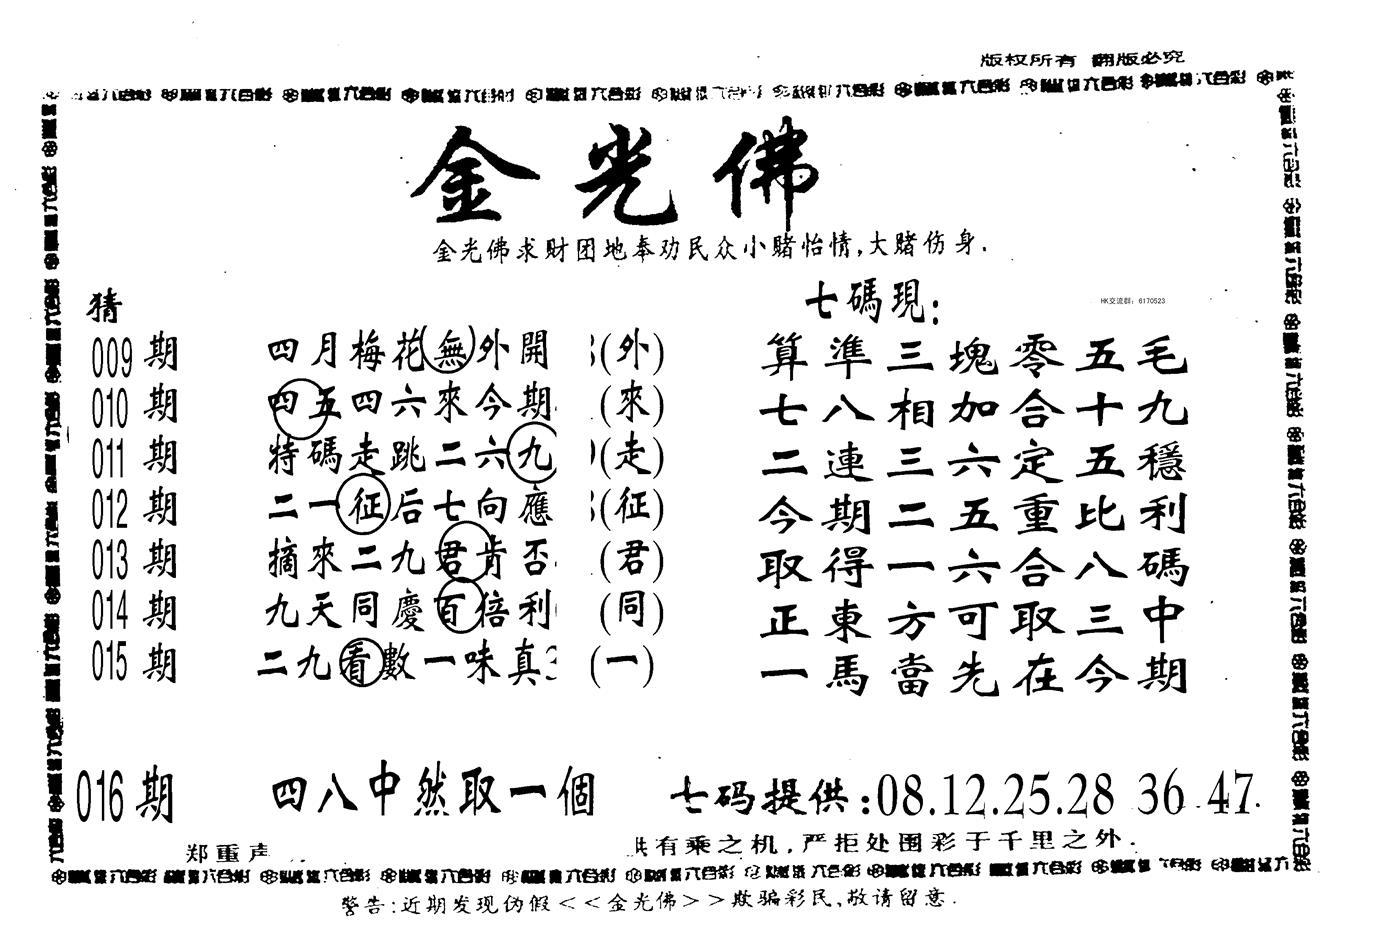 版权所有 翻版必究
金光佛
金光佛求财团地奉劝民众小赌怡情,大赌伤身.
猜
七碼現:
HK交流群：6170523
009期 四月梅花無外開 (外) 算準三塊零五毛
010期 四五四六來今期 (來) 七八相加合十九
011期 特碼走跳二六九 (走) 二連三六定五穩
012期 二一征后七向應 (征) 今期二五重比利
013期 摘來二九君肯否 (君) 取得一六合八碼
014期 九天同慶百倍利 (同) 正東方可取三中
015期 二九看數一味真 (一) 一馬當先在今期
016期 四八中然取一個 七码提供:08.12.25.28 36 47.
郑重声 有乘之机,严拒处围彩于千里之外.
警告:近期发现伪假<<金光佛>>欺骗彩民,敬请留意.